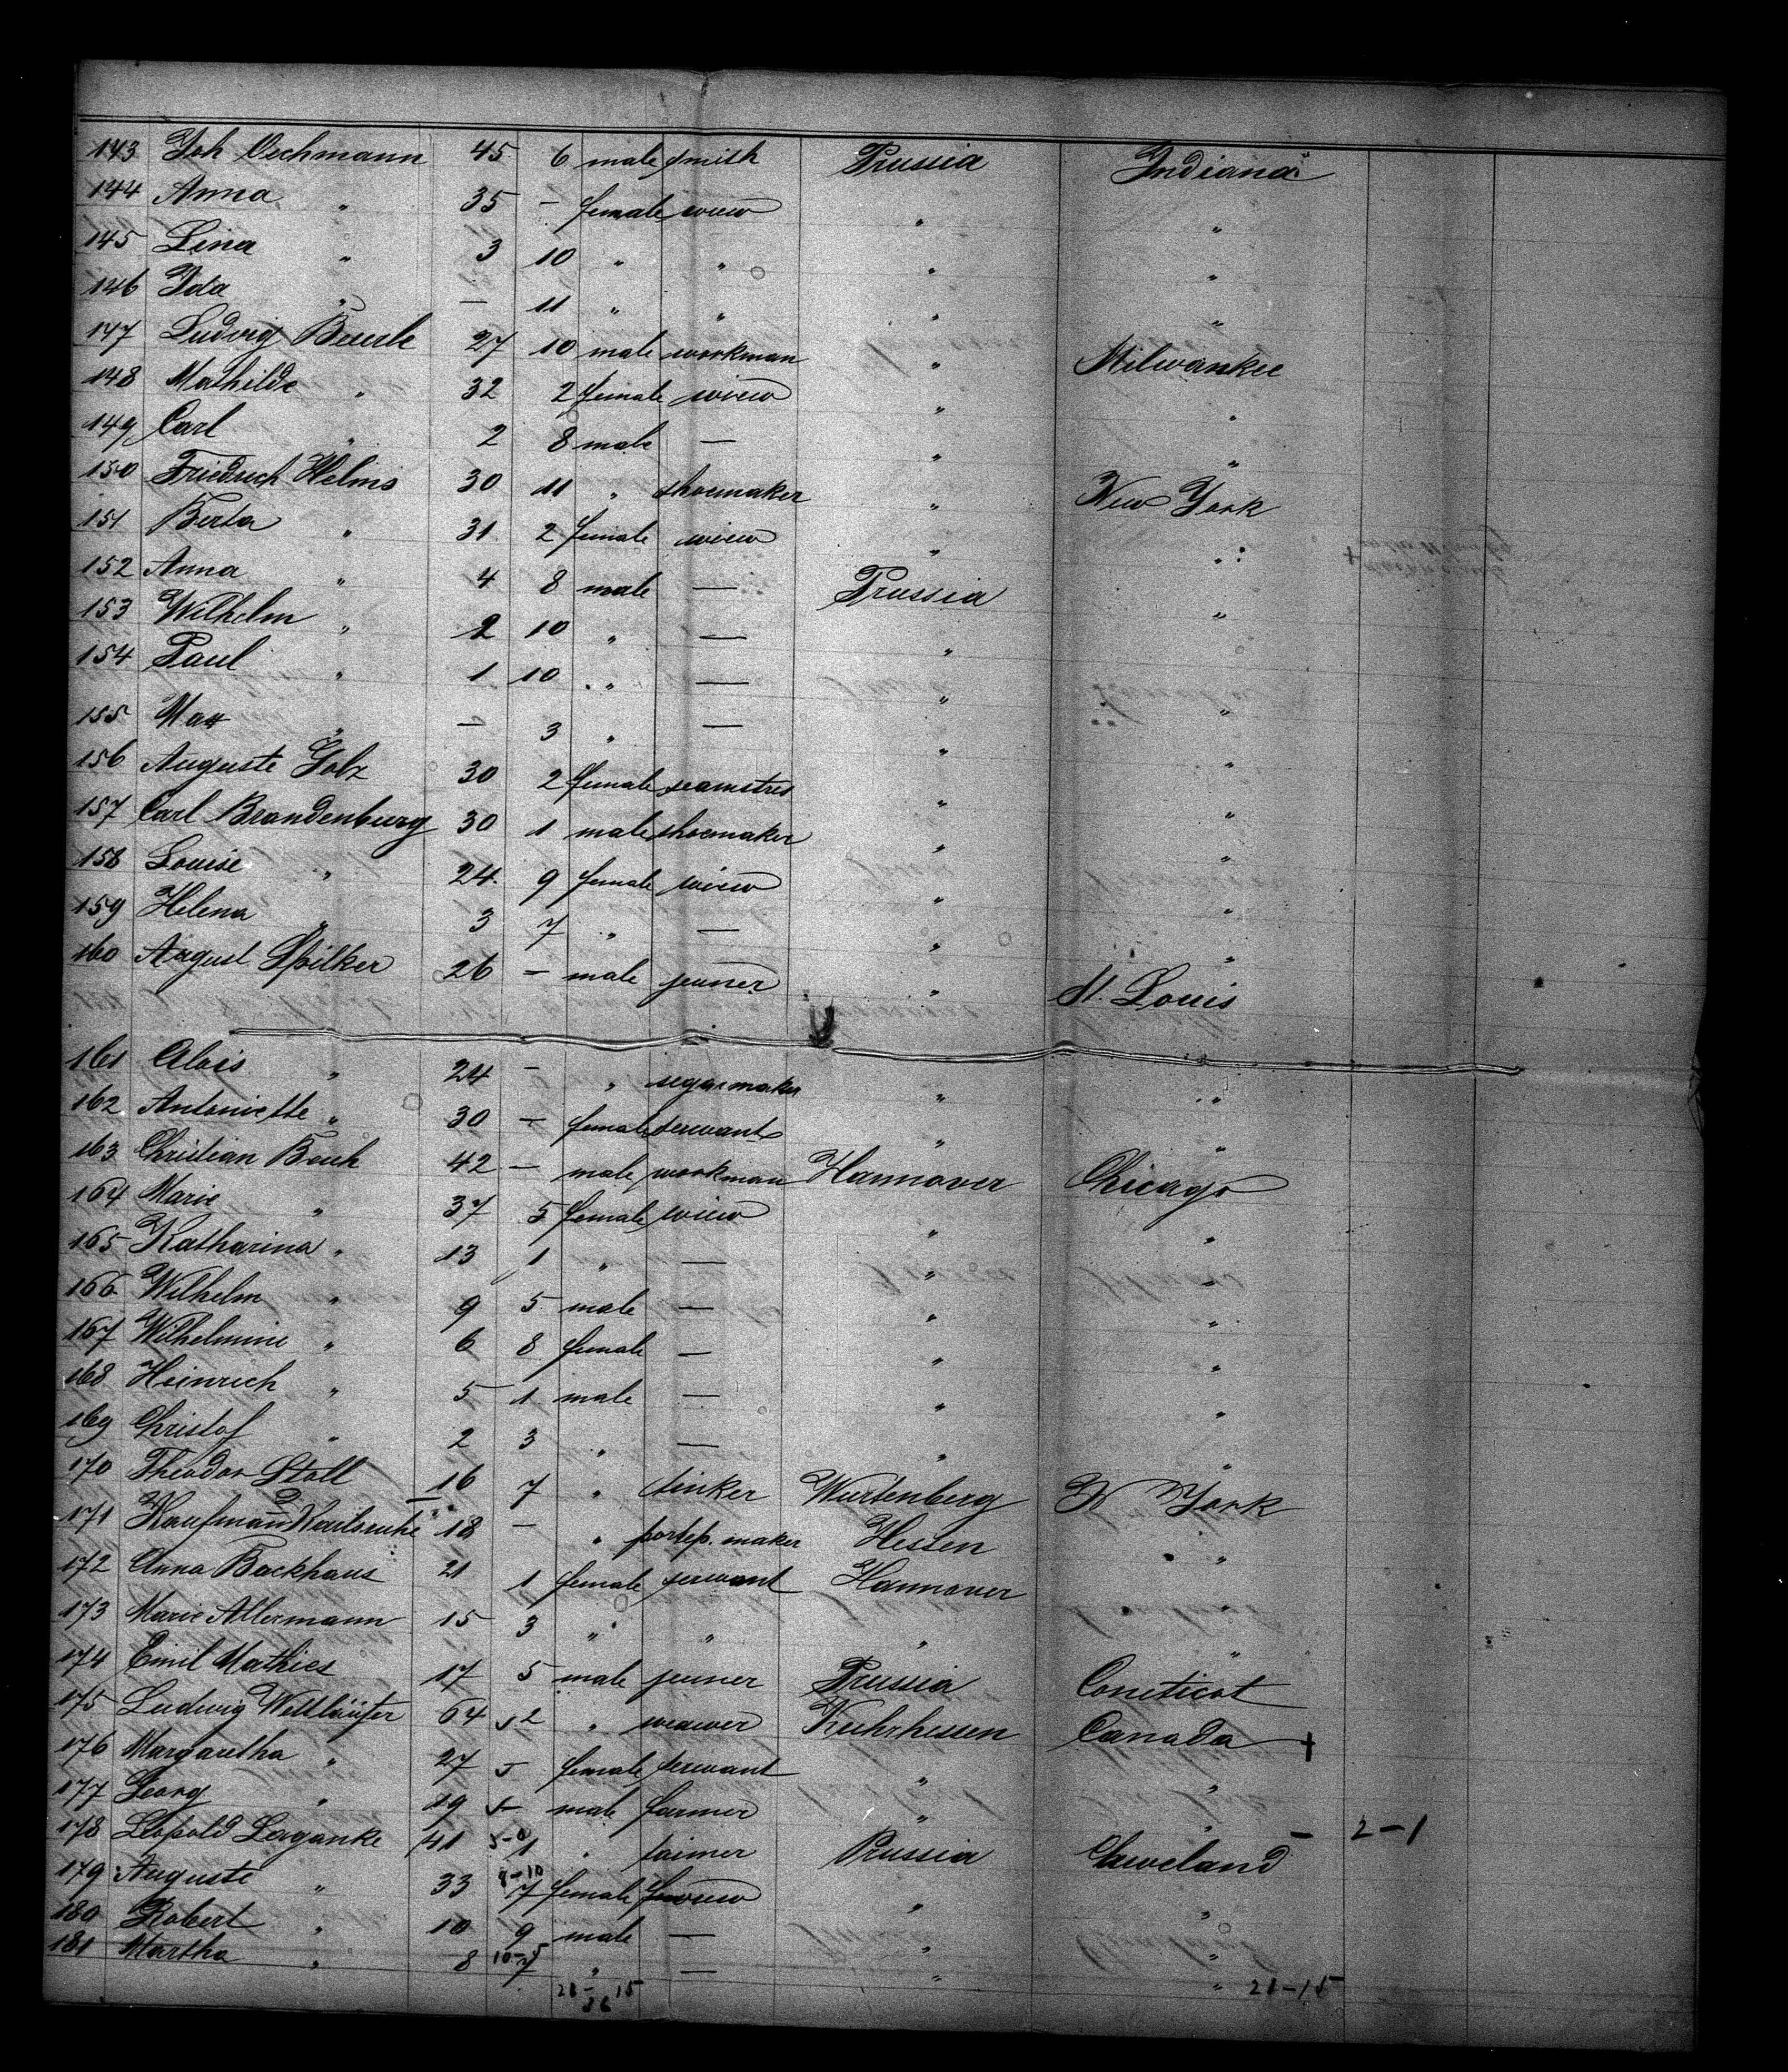 143 Joh Oechmann 45 6 male smith Prussia Indiana
144 Anna " 35 – female wiew " "
145 Lina " 3 10 " " " "
146 Ida " – 11 " " " "
147 Ludvig Beuerle 27 10 male workman " Milwankee
148 Mathilde " 32 2 female wiew " "
149 Carl " 2 8 male — " "
150 Friedrich Helms 30 11 " shoemaker " New York
151 Berta " 31 2 female wiew " "
152 Anna " 4 8 male — Prussia "
153 Wilhelm " 2 10 " — " "
154 Paul " 1 10 " — " "
155 Max " – 3 " — " "
156 Auguste Golz 30 2 female seamstres " "
157 Carl Brandenburg 30 1 male shoemaker " "
158 Louise " 24 9 female wiew " "
159 Helena " 3 7 " — " "
160 August Spilker 26 – male jeuner " St. Louis
161 Alois " 24 – " segarmaker " "
162 Antoniette " 30 – female servants " "
163 Christian Bouh 42 – male workman Hannover Chicago
164 Marie " 37 5 female wiew " "
165 Katharina " 13 1 " — " "
166 Wilhelm " 9 5 male — " "
167 Wilhelmine " 6 8 female — " "
168 Heinrich " 5 1 male — " "
169 Christof " 2 3 " — " "
170 Theodor Stoll 16 7 " tinker Wurtenberg N York
171 Kaufmann Karlsruhe 18 – " portep. maker Hessen "
172 Anna Backhaus 21 1 female servant Hannover "
173 Marie Allermann 15 3 " " " "
174 Emil Mathies 17 5 male jeuner Prussia Coneticot
175 Ludwig Wettläufer 64 2 " weawer Kuhrhessen Canada
176 Margaretha " 27 – female servant " "
177 Georg " 19 – male farmer " "
178 Leopold Leganke 41 1 " faimer Prussia Cleweland – 2–1
179 Auguste " 33 7 female wiew " "
180 Robert " 10 9 male — " "
181 Martha " 8 7 " — " "
21–15 21–15
36